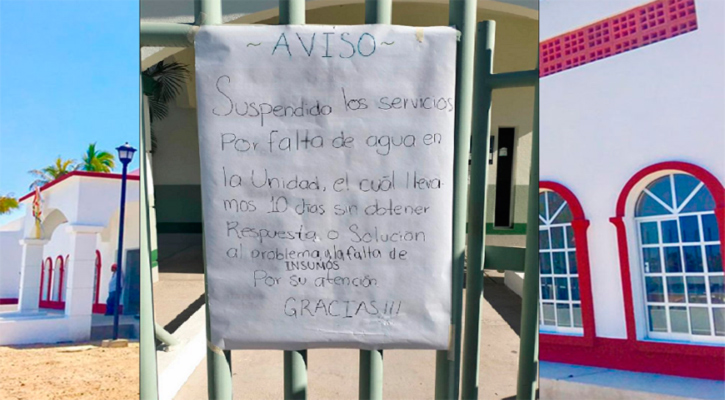 ~AVISO~
Suspendido los servicios
Por falta de agua en
la Unidad, el cuál lleva
mos 10 días sin obtener
Respuesta o Solución
al problema, y la falta de
INSUMOS
Por su atención
GRACIAS!!!